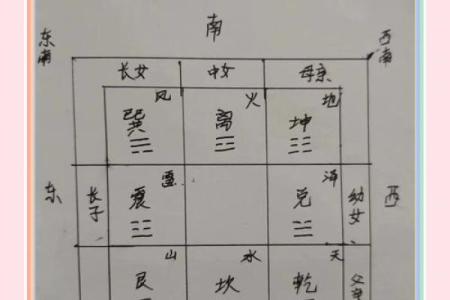 南
东南 西南
长女 中女 母亲
风 火 地
巽 离 坤
☴ ☲ ☷
东 长子 震 雷 兑 泽 幼女 西
☳ ☱
山 水 天
艮 坎 乾 父亲